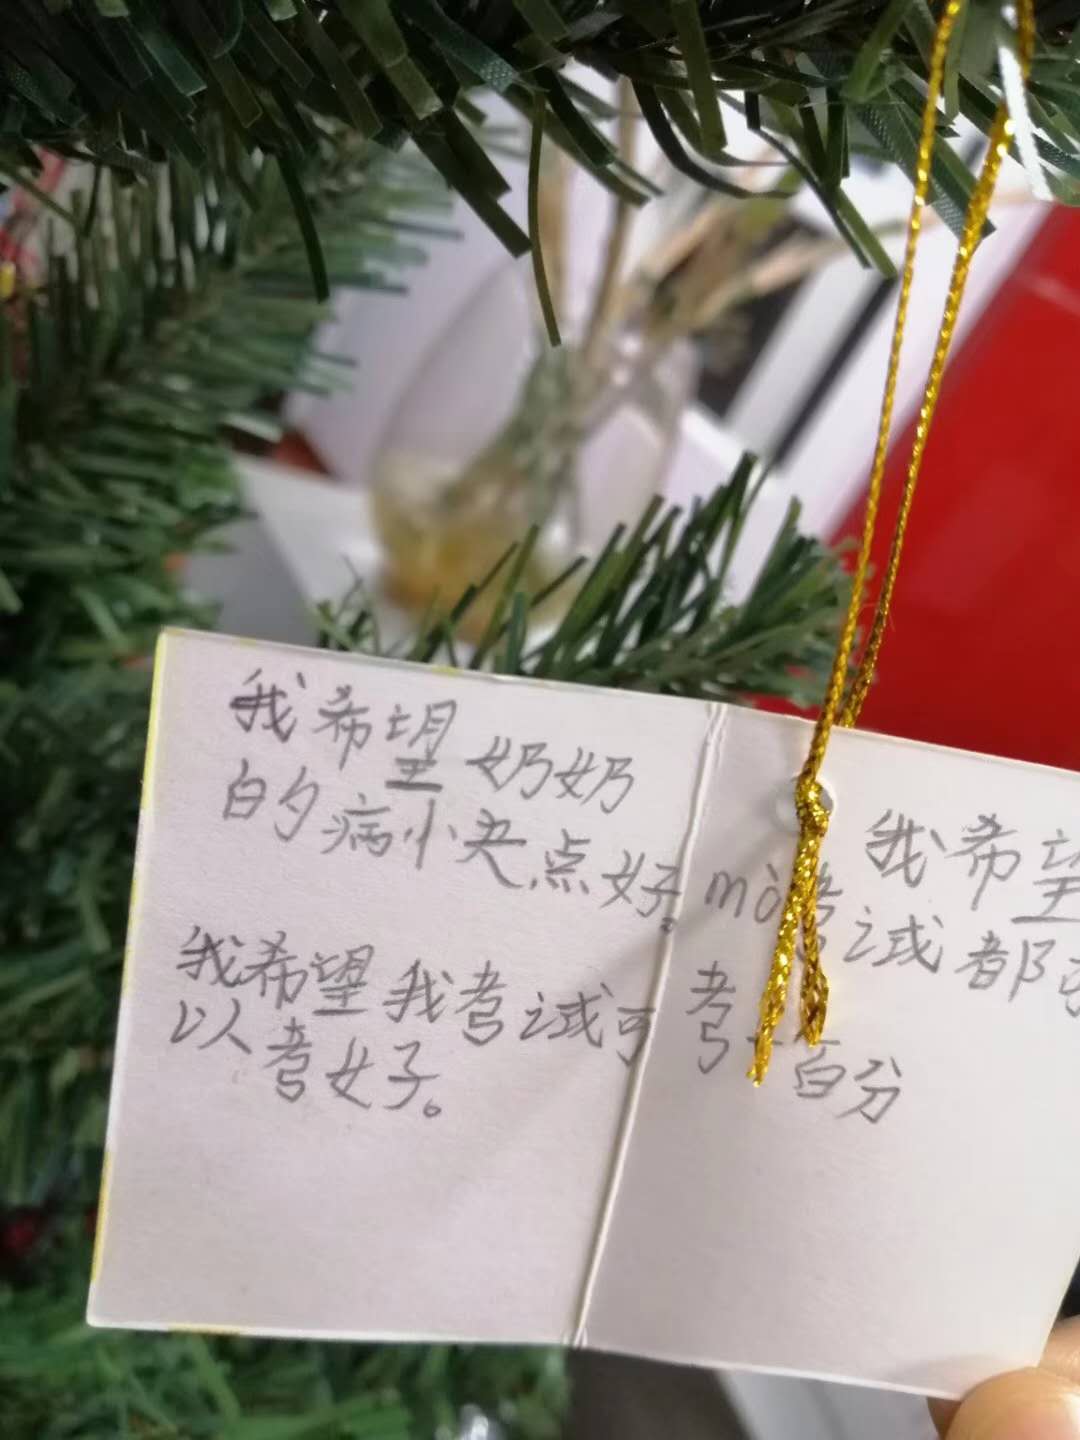 我希望奶奶
的病快点好。
我希望我考试可
以考好。
我希望
mò考试都
考一百分